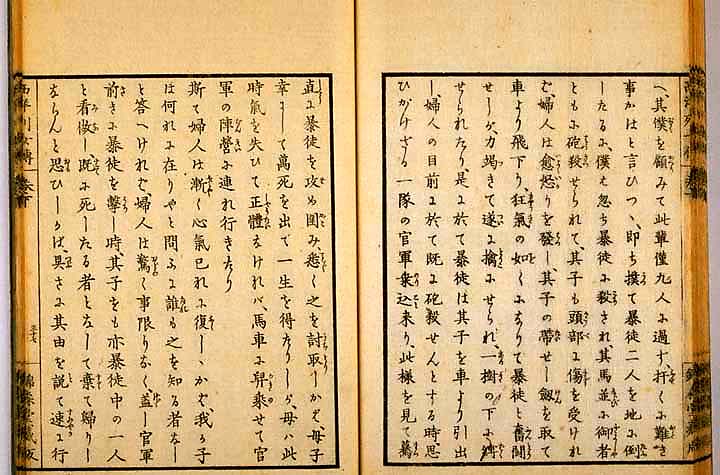 へ、其僕を顧みて此輩僅九人に過ず、打くに難き
事かはと言ひつヽ、即ち撲て暴徒二人を地に倒
したるに、僕は忽ち暴徒に殺され、其馬並に御者
ともに砲殺せられて、其子も頭部に傷を受けれ
ば、婦人は愈怒りを發し、其子の帶せし劔を取て
車より飛下り、狂氣の如くになりて暴徒と奮鬪
せしが、力竭きて遂に擒にせられ、一樹の下に縛
せられたり、是に於て暴徒は其子を車より引出
し、婦人の目前に於て既に砲殺せんとする時、思
ひがけざる一隊の官軍乗込来り、此樣を見て驀
直に暴徒を攻め圍み悉く之を討取しかば、母子
幸にして萬死を出で一生を得たりしが、母ハ此
時氣を失ひて正體なけれバ、馬車に舁乗せて官
軍の陣營に連れ行きたり
斯て婦人は漸く心氣已れに復し、かば、我が子
は何れに在りやと問ふに誰も之を知る者なし
と答へけれむ、婦人は驚く事限りなく蓋し官軍
前きに暴徒を擊し時其子をも亦暴徒中の一人
と看做し既に死したる者となして棄て歸りし
ならんと思ひしかば、具さに其由を說て速に行
西洋列女傳